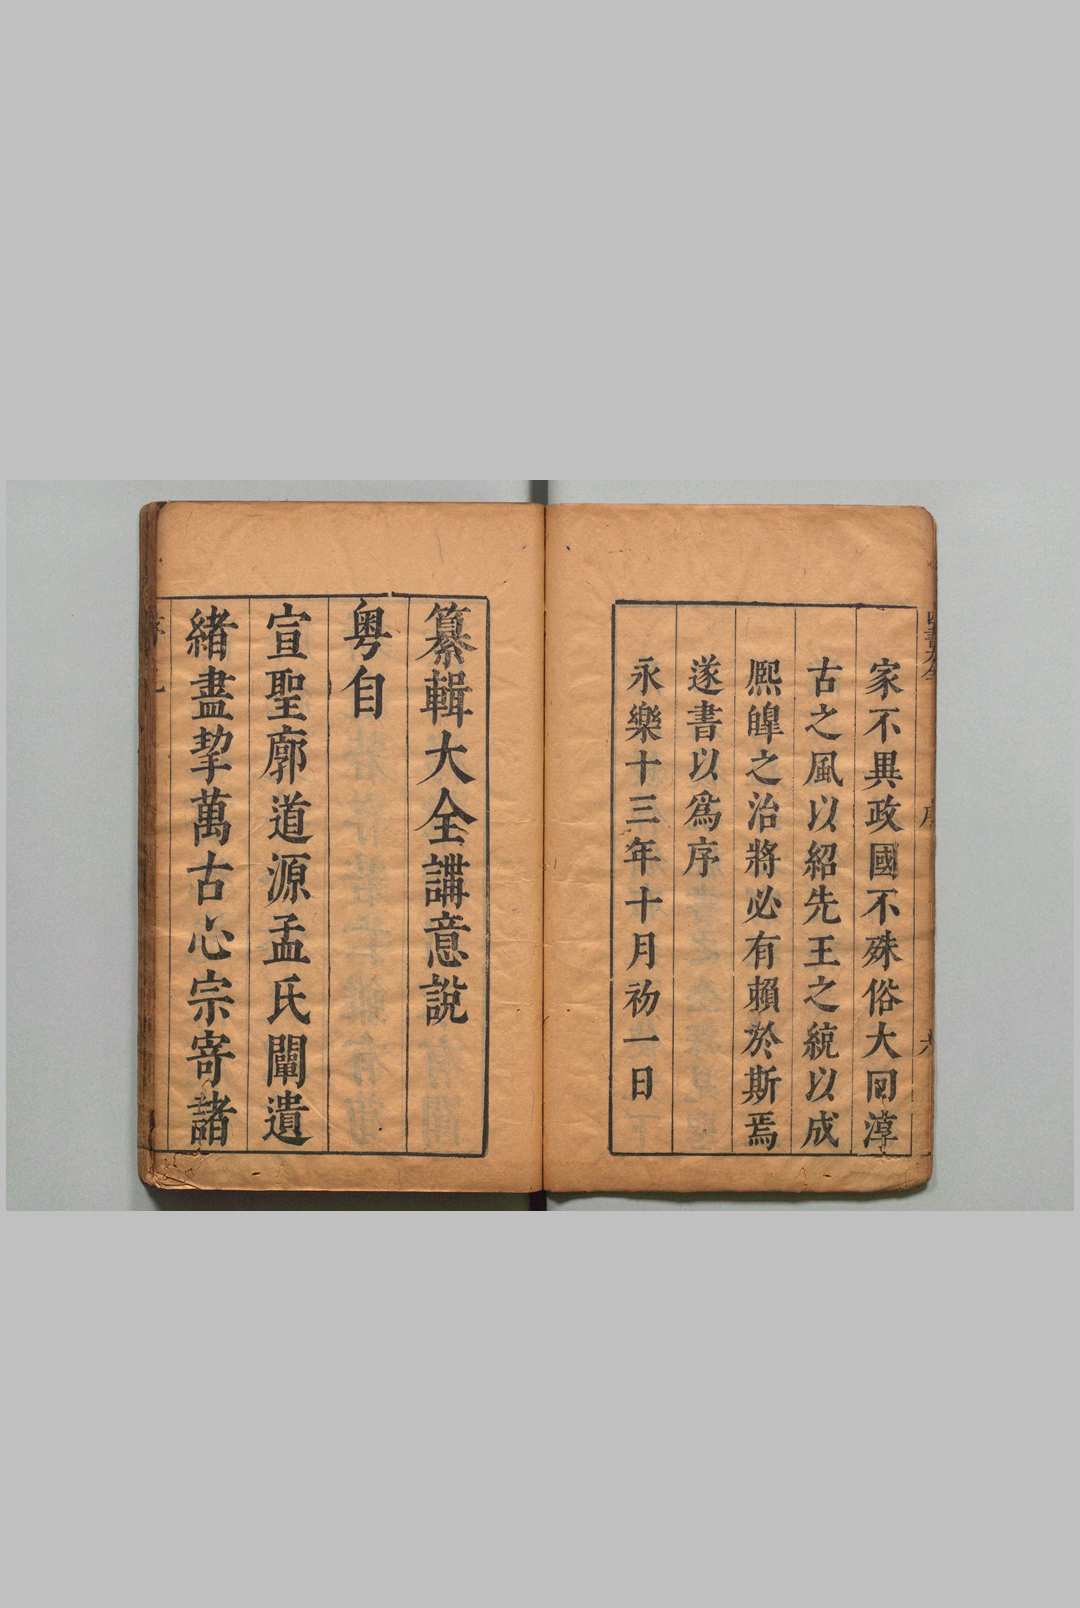 家不異政國不殊俗大同淳
古之風以紹先王之統以成
熈皡之治將必有賴於斯焉
遂書以爲序
永樂十三年十月初一日
纂輯大全講意說
粤自
宣聖廓道源孟氏闡遺
緒盡挈萬古心宗寄諸